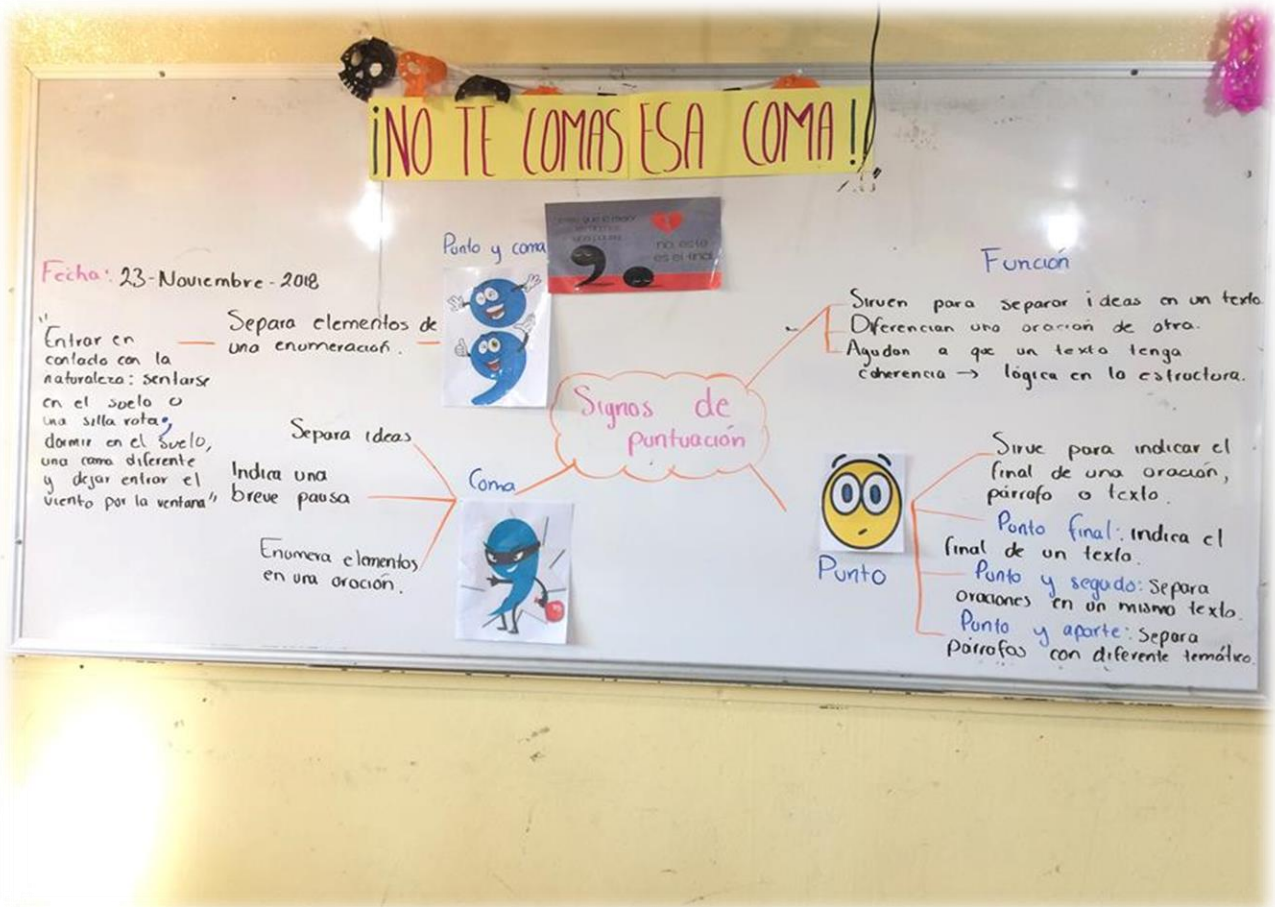 ¡NO TE COMAS ESA COMA!
no, este
es el final
Fecha: 23-Noviembre-2018
"Entrar en
contacto con la
naturaleza: sentarse
en el suelo o
una silla rota;
dormir en el suelo,
una cama diferente
y dejar entrar el
viento por la ventana"
Punto y coma
Separa elementos de
una enumeración.
Coma
Separa ideas
Indica una
breve pausa
Enumera elementos
en una oración.
Signos de
puntuación
Función
Sirven para separar ideas en un texto.
Diferencian una oración de otra.
Ayudan a que un texto tenga
coherencia → lógica en la estructura.
Punto
Sirve para indicar el
final de una oración,
párrafo o texto.
Punto final: indica el
final de un texto.
Punto y seguido: Separa
oraciones en un mismo texto.
Punto y aparte: Separa
párrafos con diferente temática.